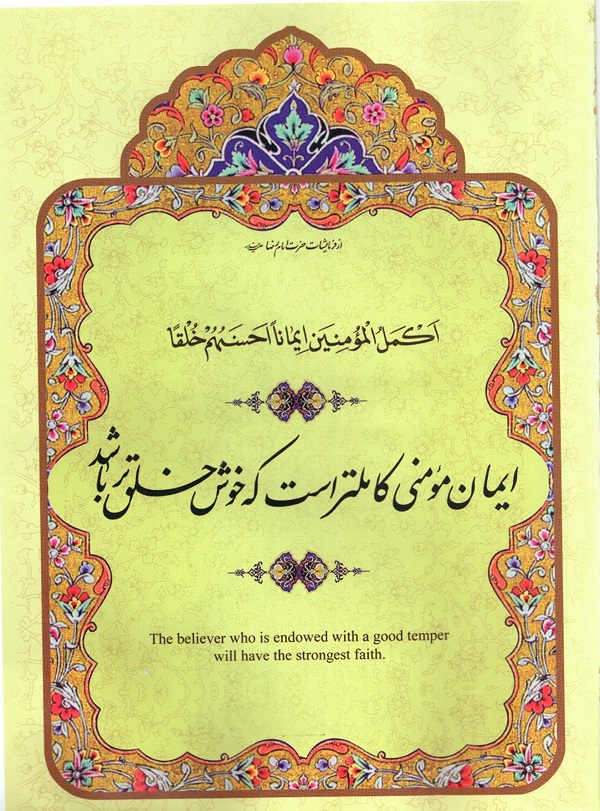 از فرمایشات حضرت امام رضا علیه‌السلام
اَكْمَلُ الْمُؤمِنِينَ اِيمٰاناً اَحسَنَهُمْ خُلْقًا
ایمان مؤمنی کاملتر است که خوش خلق تر باشد
The believer who is endowed with a good temper
will have the strongest faith.